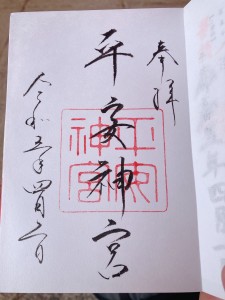 奉拝
平安神宮
令和五年四月二日
平安神宮